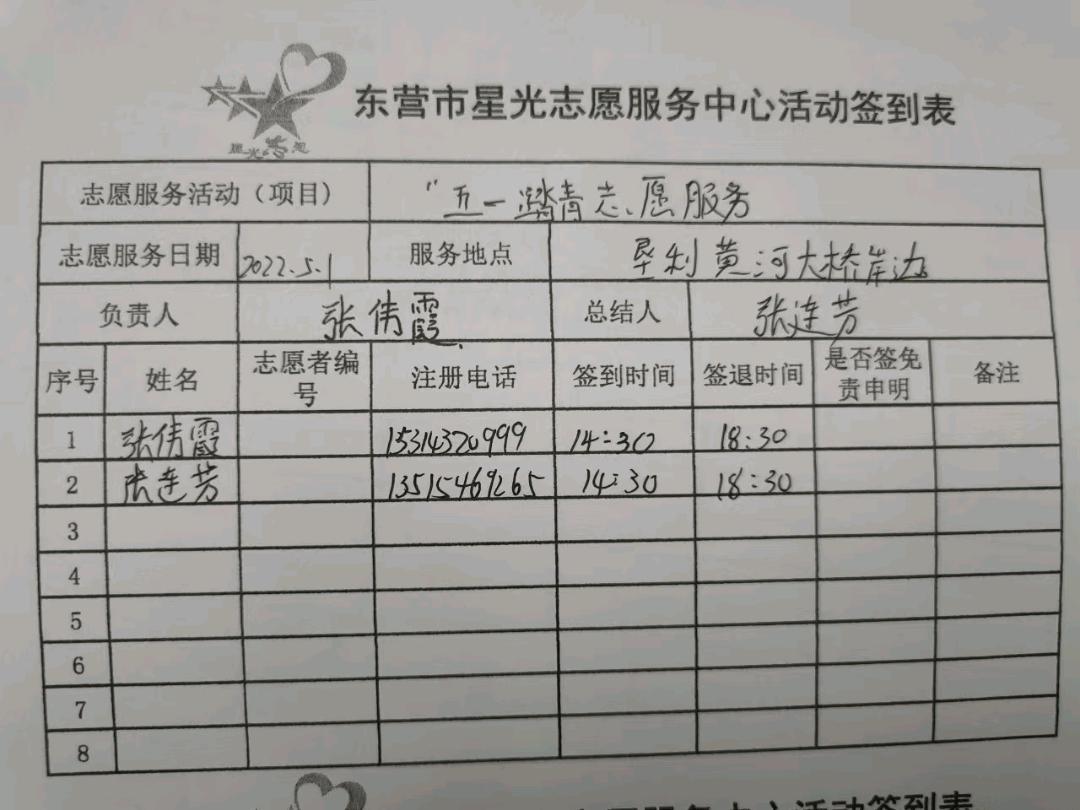 星光志愿
东营市星光志愿服务中心活动签到表
志愿服务活动（项目） "五一踏青志愿服务
志愿服务日期 2022.5.1 服务地点 垦利黄河大桥岸边
负责人 张倩霞 总结人 张连芳
序号 姓名 志愿者编号 注册电话 签到时间 签退时间 是否签免责申明 备注
1 张倩霞 15314320999 14:30 18:30
2 张连芳 13515469265 14:30 18:30
3
4
5
6
7
8
东营市星光志愿服务中心活动签到表